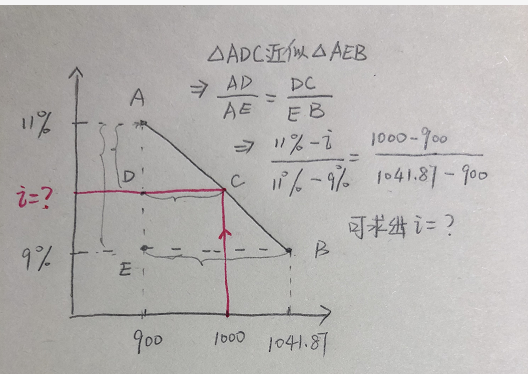 △ADC近似△AEB
⇒ AD/AE = DC/EB
⇒ 11%-i/11%-9% = 1000-900/1041.87-900
可求出 i=?
A
11%
D
C
i=?
9%
E
B
900
1000
1041.87